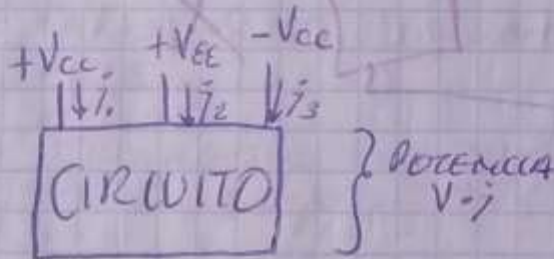 +Vcc +VEE -Vcc
i1 i2 i3
CIRCUITO
POTENCIA
V·i